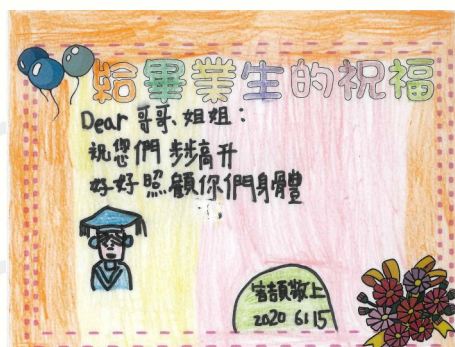 給畢業生的祝福
Dear 哥哥、姐姐：
祝您們 步步高升
好好照顧你們身體
敬上
2020 6/15